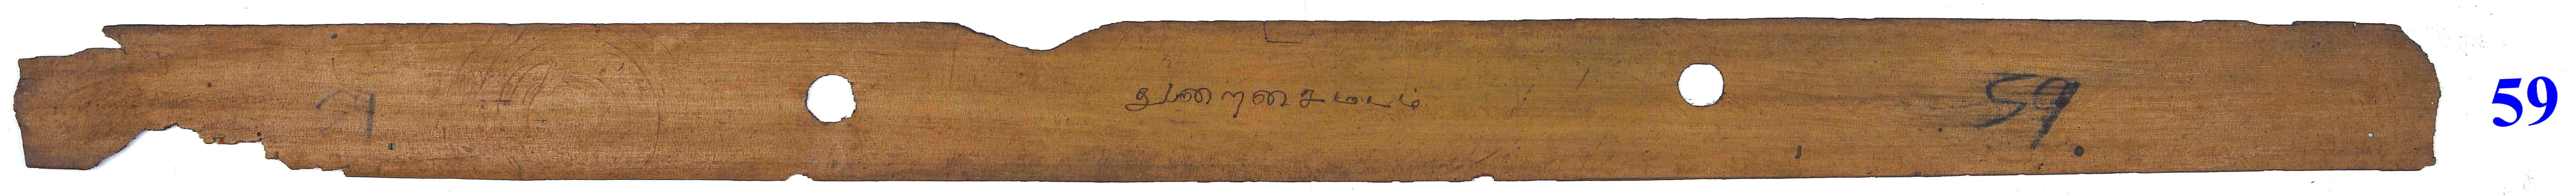 துறைசைமடம்
59
59